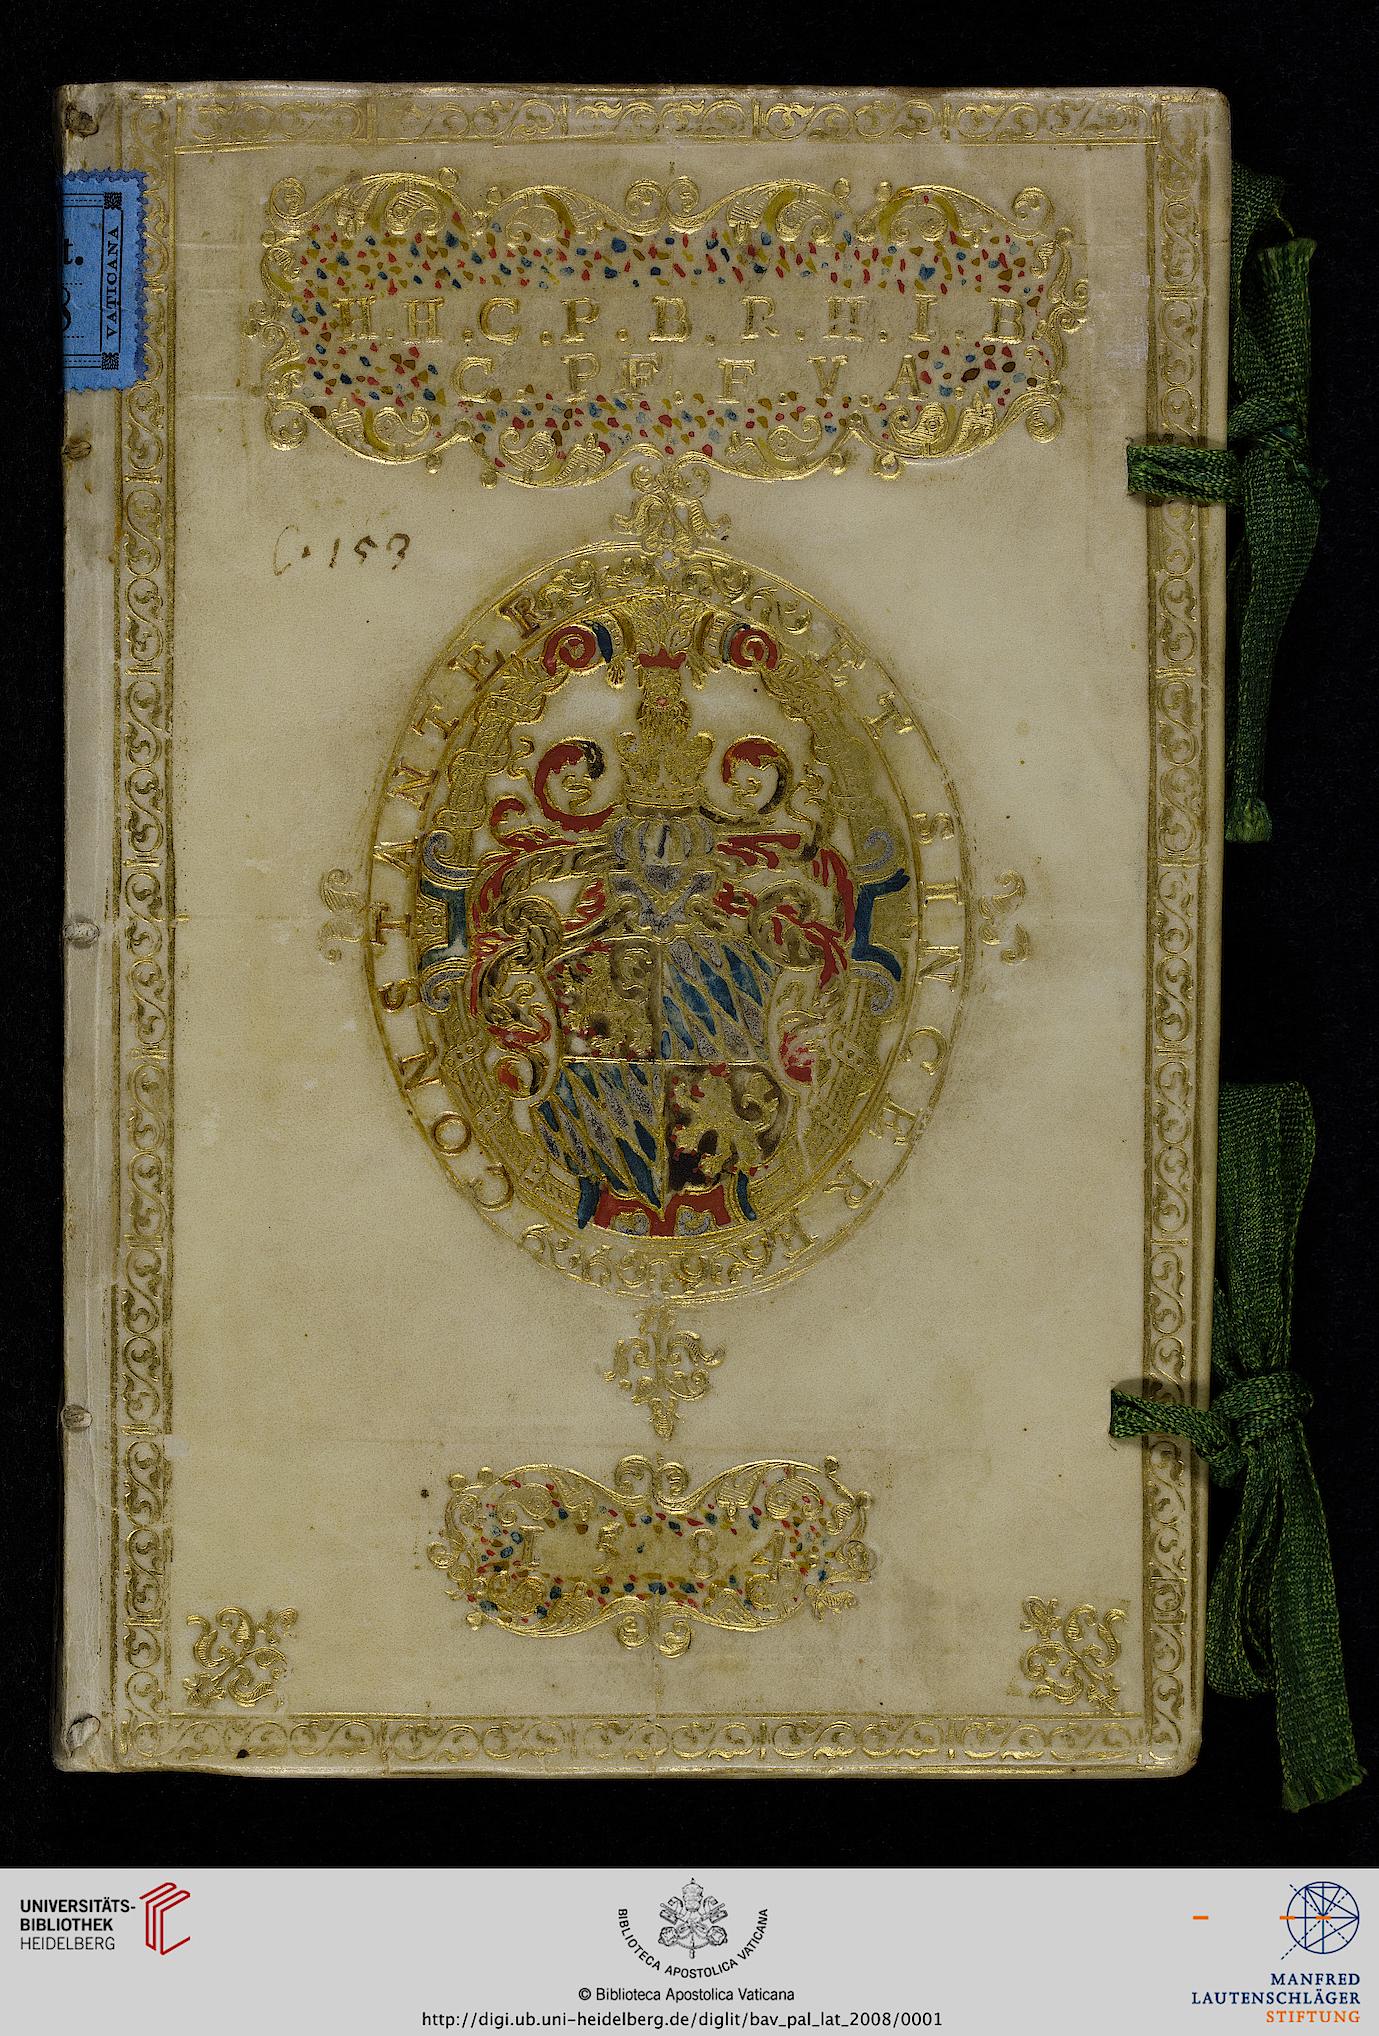 t.
8
VATICANA
H.H.C.P.B.R.H.I.B
C.PF.F.V.A
C. 153
CONSTANTER
ET SINCERE
1584
UNIVERSITÄTS-
BIBLIOTHEK
HEIDELBERG
BIBLIOTECA APOSTOLICA VATICANA
© Biblioteca Apostolica Vaticana
http://digi.ub.uni-heidelberg.de/diglit/bav_pal_lat_2008/0001
MANFRED
LAUTENSCHLÄGER
STIFTUNG